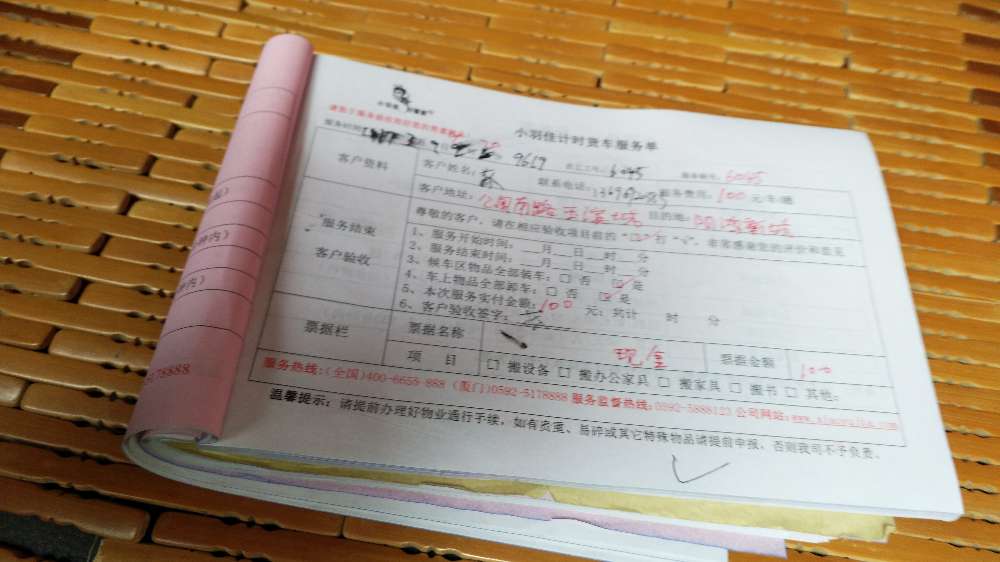 小羽佳计时货车服务单
服务时间
9617 6045 6045
客户资料 客户姓名: 联系电话: 服务费用: 100 元/车/趟
客户地址: 目的地:
尊敬的客户，请在相应验收项目前的“□”打“√”，非常感谢您的评价和意见
服务结束
客户验收
1、服务开始时间: 月 日 时 分
2、服务结束时间: 月 日 时 分
3、候车区物品全部装车: □ 否 ☑ 是
4、车上物品全部卸车: □ 否 ☑ 是
5、本次服务实付金额: 100 元; 共计 时 分
6、客户验收签字:
票据栏 票据名称 现金 票据金额 100
项 目 □ 搬设备 □ 搬办公家具 □ 搬家具 □ 搬书 □ 其他:
服务热线:(全国)400-6655-888 (厦门)0592-5178888 服务监督热线:0592-5888123 公司网站:www.xiaoyujia.com
温馨提示: 请提前办理好物业通行手续，如有贵重、易碎或其它特殊物品请提前申报，否则我司不予负责。
5178888